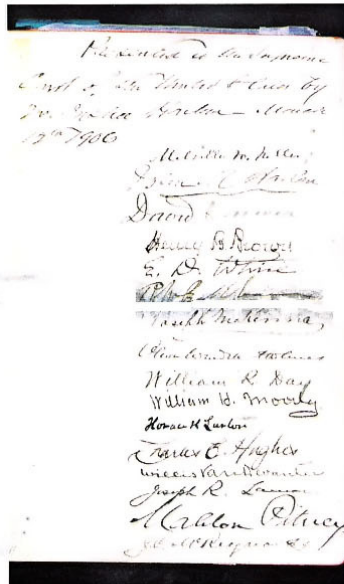 Presented to the Supreme
Court of the United States by
Mr. Justice Harlan - March
12th 1906
Melville W. Fuller
John M Harlan
David J. Brewer
Henry B. Brown
E. D. White
Joseph McKenna,
Oliver Wendell Holmes
William R. Day
William H. Moody
Horace H Lurton
Charles E. Hughes
Willis Van Devanter
Joseph R. Lamar
Mahlon Pitney